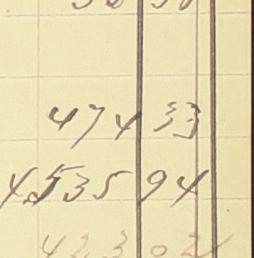 474 33
4535 94
423 02